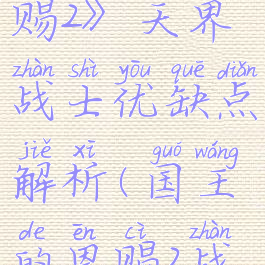 赐2》天界
zhàn shì yōu quē diǎn
战士优缺点
jiě xī guó wáng
解析(国王
de ēn cì zhàn
的恩赐2战